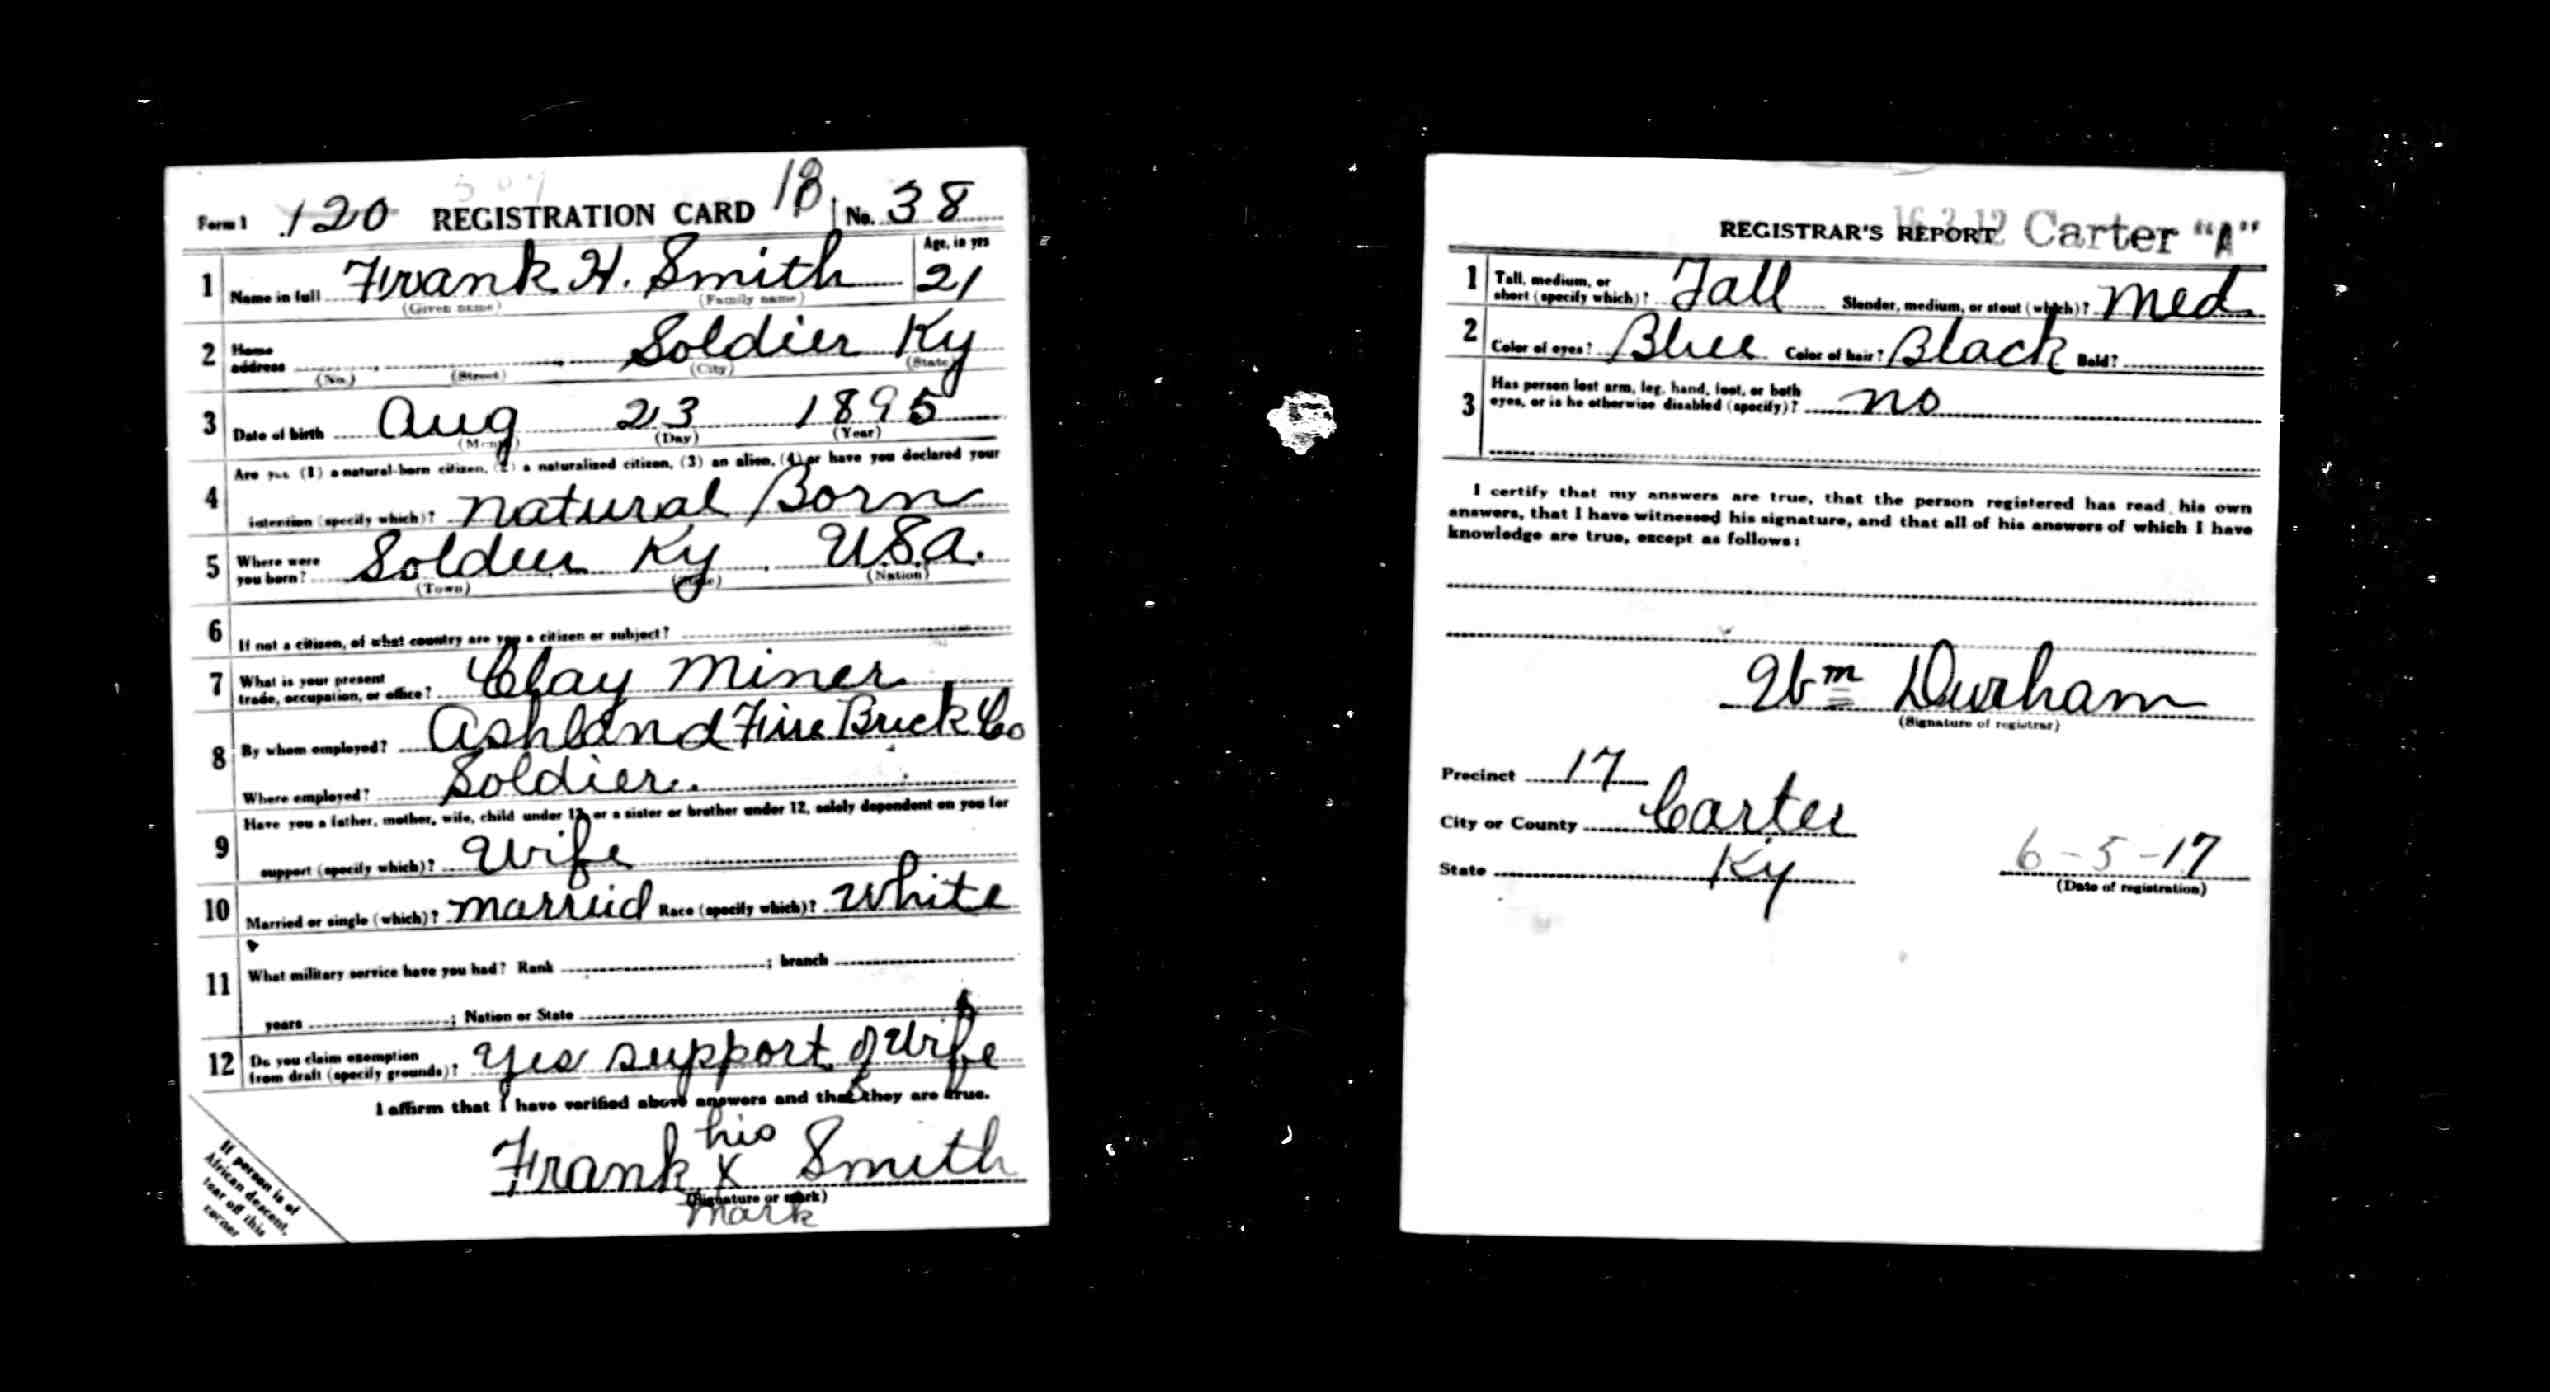 Form 1 120 REGISTRATION CARD 18 No. 38
1 Name in full Frank H. Smith Age, in yrs 21
(Given name) (Family name)
2 Home address Soldier Ky
(No.) (Street) (City) (State)
3 Date of birth Aug 23 1895
(Month) (Day) (Year)
4 Are you (1) a natural-born citizen, (2) a naturalized citizen, (3) an alien, (4) or have you declared your
intention (specify which)? natural Born
5 Where were you born? Soldier Ky U.S.A.
(Town) (State) (Nation)
6 If not a citizen, of what country are you a citizen or subject?
7 What is your present trade, occupation, or office? Clay Miner
8 By whom employed? Ashland Fire Brick Co
Where employed? Soldier
9 Have you a father, mother, wife, child under 12, or a sister or brother under 12, solely dependent on you for
support (specify which)? Wife
10 Married or single (which)? married Race (specify which)? White
11 What military service have you had? Rank ; branch
years ; Nation or State
12 Do you claim exemption from draft (specify grounds)? Yes support of Wife
I affirm that I have verified above answers and that they are true.
his
Frank X Smith
(Signature or mark)
mark
If person is of
African descent,
tear off this
corner
REGISTRAR'S REPORT Carter "A"
1 Tall, medium, or short (specify which)? Tall Slender, medium, or stout (which)? Med
2 Color of eyes? Blue Color of hair? Black Bald?
3 Has person lost arm, leg, hand, foot, or both
eyes, or is he otherwise disabled (specify)? no
I certify that my answers are true, that the person registered has read his own
answers, that I have witnessed his signature, and that all of his answers of which I have
knowledge are true, except as follows:
Wm Durham
(Signature of registrar)
Precinct 17
City or County Carter
State Ky
6-5-17
(Date of registration)